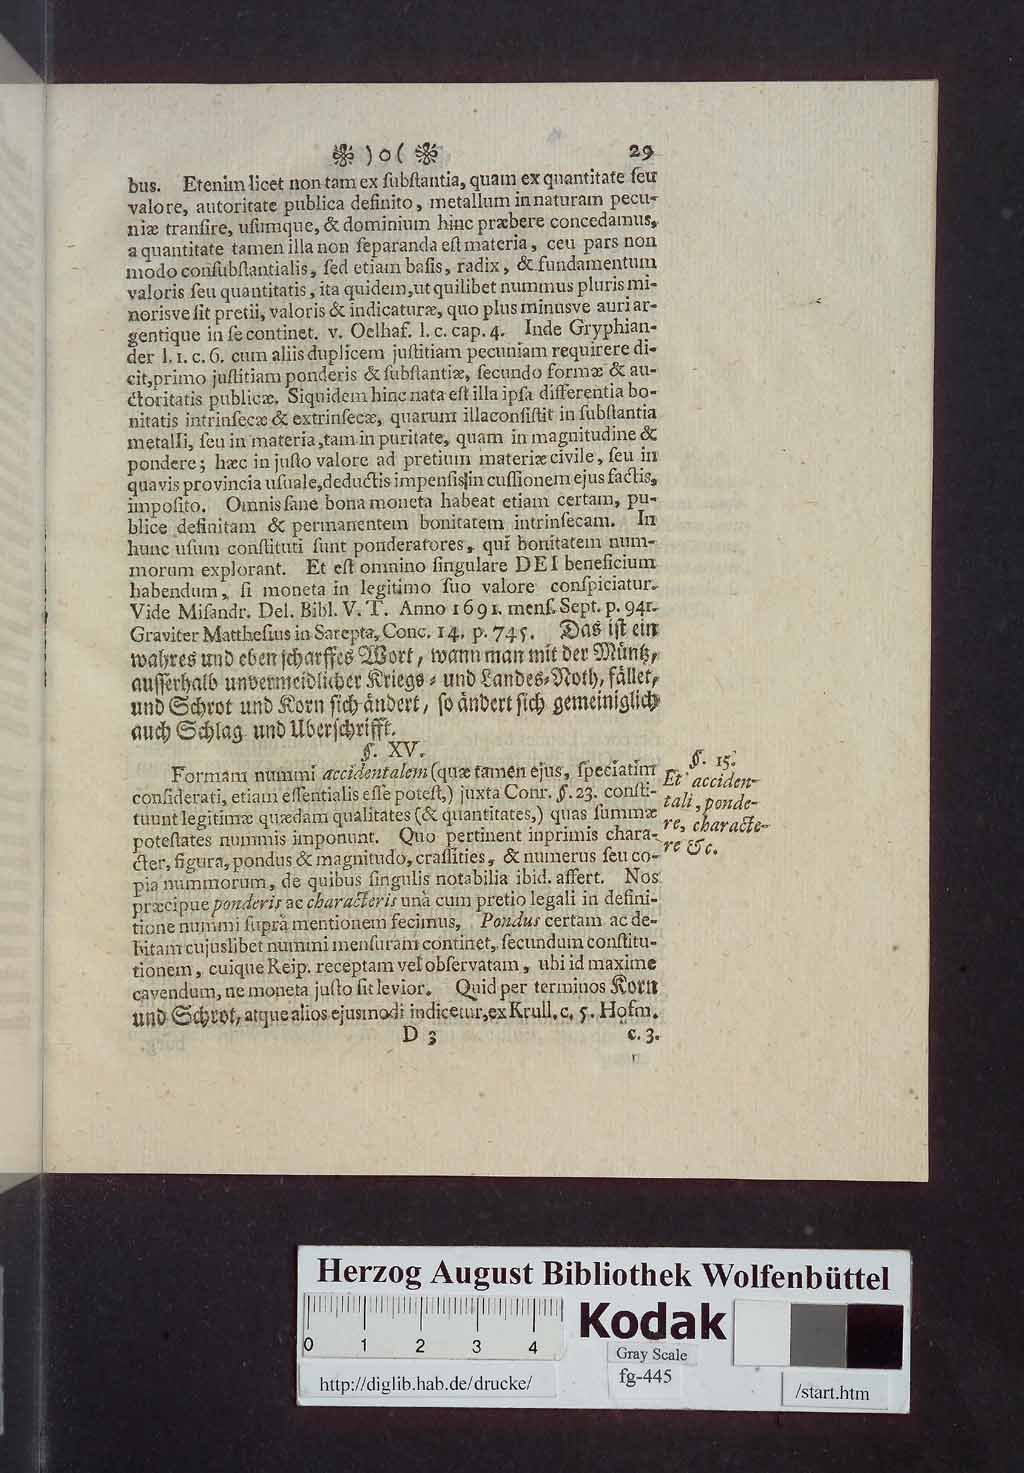 ❃ ) o ( ❃ 29
bus. Etenim licet non tam ex ſubſtantia, quam ex quantitate ſeu
valore, autoritate publica definito, metallum in naturam pecu-
niæ tranſire, uſumque, & dominium hinc præbere concedamus,
a quantitate tamen illa non ſeparanda eſt materia, ceu pars non
modo conſubſtantialis, ſed etiam baſis, radix, & fundamentum
valoris ſeu quantitatis, ita quidem, ut quilibet nummus pluris mi-
norisve ſit pretii, valoris & indicaturæ, quo plus minusve auri ar-
gentique in ſe continet. v. Oelhaf. l. c. cap. 4. Inde Gryphian-
der l. 1. c. 6. cum aliis duplicem juſtitiam pecuniam requirere di-
cit, primo juſtitiam ponderis & ſubſtantiæ, ſecundo formæ & au-
ctoritatis publicæ. Siquidem hinc nata eſt illa ipſa differentia bo-
nitatis intrinſecæ & extrinſecæ, quarum illa conſiſtit in ſubſtantia
metalli, ſeu in materia, tam in puritate, quam in magnitudine &
pondere; hæc in juſto valore ad pretium materiæ civile, ſeu in
quavis provincia uſuale, deductis impenſis in cuſſionem ejus factis,
impoſito. Omnis ſane bona moneta habeat etiam certam, pu-
blice definitam & permanentem bonitatem intrinſecam. In
hunc uſum conſtituti ſunt ponderatores, qui bonitatem num-
morum explorant. Et eſt omnino ſingulare DEI beneficium
habendum, ſi moneta in legitimo ſuo valore conſpiciatur.
Vide Miſandr. Del. Bibl. V. T. Anno 1691. menſ. Sept. p. 941.
Graviter Mattheſius in Sarepta, Conc. 14. p. 745. Das iſt ein
wahres und eben ſcharffes Wort, wann man mit der Müntz,
auſſerhalb unvermeidlicher Kriegs- und Landes-Noth, fället,
und Schrot und Korn ſich ändert, ſo ändert ſich gemeiniglich
auch Schlag und Uberſchrifft.
§. XV.
Formam nummi accidentalem (quæ tamen ejus, ſpeciatim
conſiderati, etiam eſſentialis eſſe poteſt,) juxta Conr. §. 23. conſti-
tuunt legitimæ quædam qualitates (& quantitates,) quas ſummæ
poteſtates nummis imponunt. Quo pertinent inprimis chara-
cter, figura, pondus & magnitudo, craſſities, & numerus ſeu co-
pia nummorum, de quibus ſingulis notabilia ibid. affert. Nos
præcipue ponderis ac characteris unà cum pretio legali in defini-
tione nummi ſuprà mentionem fecimus, Pondus certam ac de-
bitam cujuslibet nummi menſuram continet, ſecundum conſtitu-
tionem, cuique Reip. receptam vel obſervatam, ubi id maxime
cavendum, ne moneta juſto ſit levior. Quid per terminos Korn
und Schrot, atque alios ejusmodi indicetur, ex Krull. c. 5. Hofm.
D 3 c. 3.
§. 15.
Et acciden-
tali, ponde-
re, characte-
re &c.
Herzog August Bibliothek Wolfenbüttel
Kodak
0 1 2 3 4
Gray Scale
fg-445
http://diglib.hab.de/drucke/
/start.htm